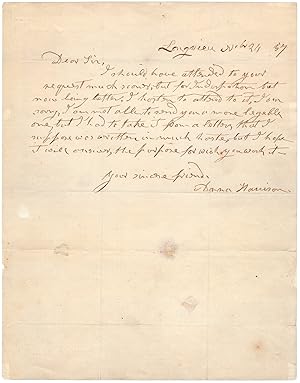 Longview Nov 24 57
Dear Sir,
I should have attended to your
request much sooner, but for Indisposition but
now being better, I hasten to attend to it, I am
sorry, I am not able to send you a more legable
one, but I had to take it from a letter, that I
suppose was written in much haste, but I hope
it will answer, the purpose for wich you want it
Your sincere friend
Anna Harrison